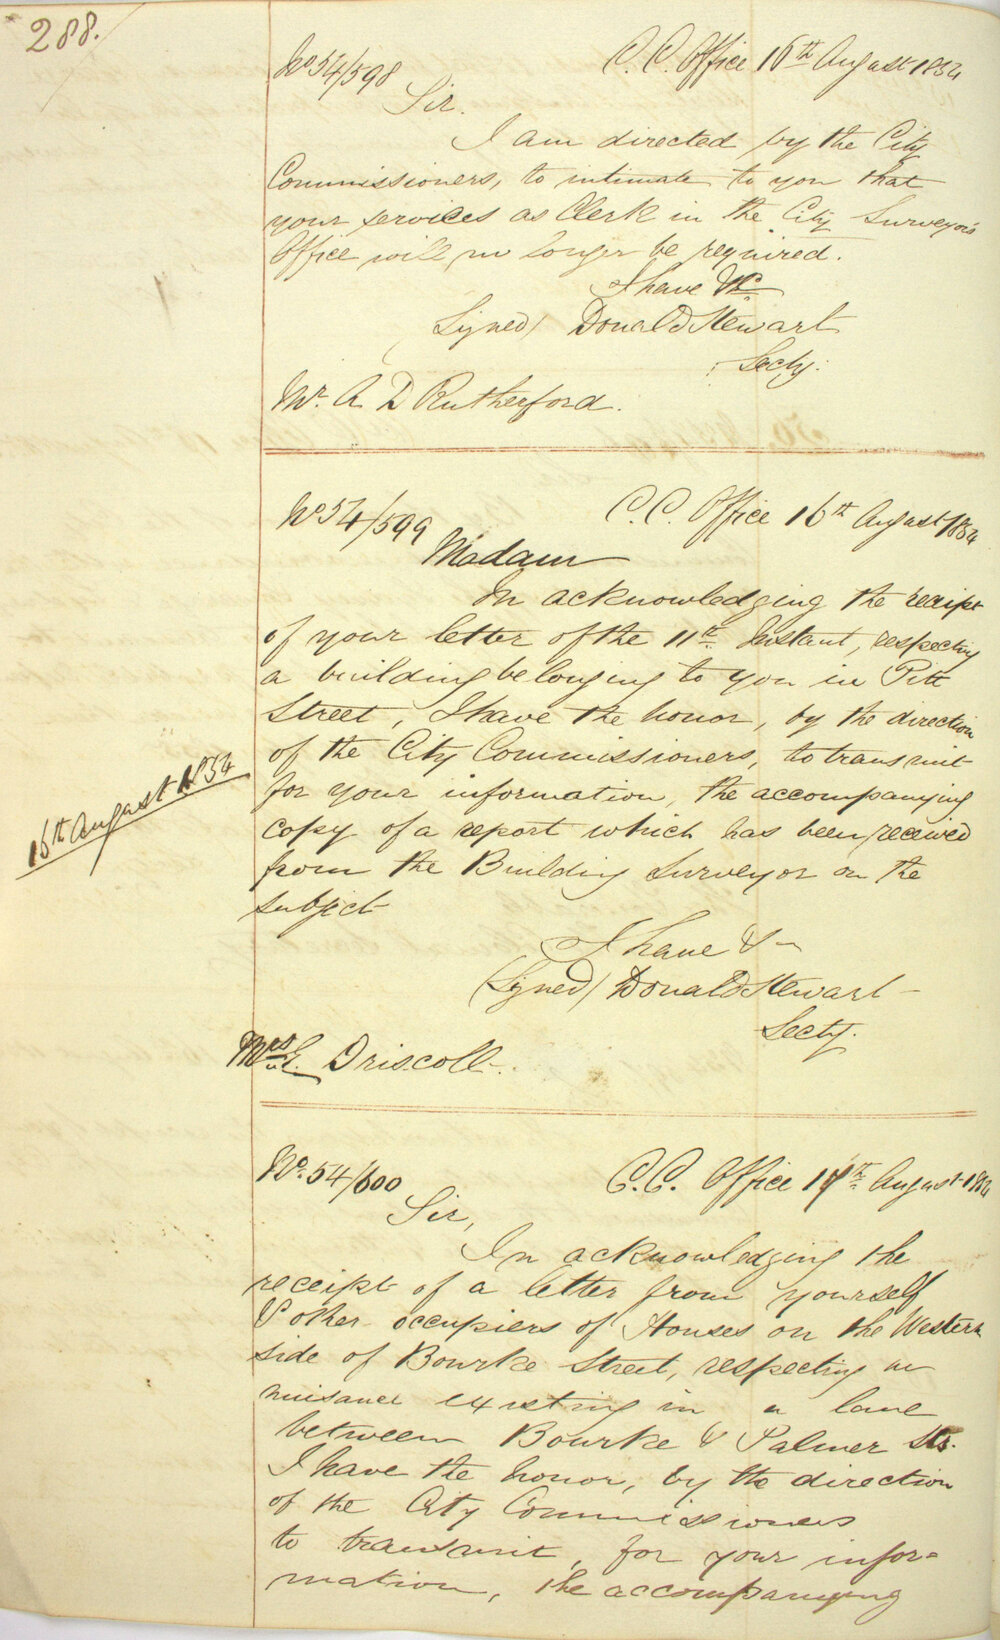 288.
No 54/598
C. C. Office 16th August 1854
Sir.
I am directed by the City
Commissioners, to intimate to you that
your services as Clerk in the City Surveyor's
Office will no longer be required.
I have &c
(Signed) Donald Stewart
Secty.
Mr. A D Rutherford.
No 54/599
C. C. Office 16th August 1854
Madam
In acknowledging the reciept
of your letter of the 11th Instant, respecting
a building belonging to you in Pitt
Street, I have the honor, by the direction
of the City Commissioners, to transmit
for your information, the accompanying
copy of a report which has been received
from the Building Surveyor on the
subject
I have &
(Signed) Donald Stewart
Secty.
Mrs E. Driscoll.
16th August 1854
No. 54/600
C. C. Office 17th August 1854
Sir,
In acknowledging the
receipt of a letter from yourself
& other occupiers of Houses on the Western
side of Bourke Street, respecting a
nuisance existing in a lane
between Bourke & Palmer Sts.
I have the honor, by the direction
of the City Commissioners
to transmit, for your infor=
mation, the accompanying